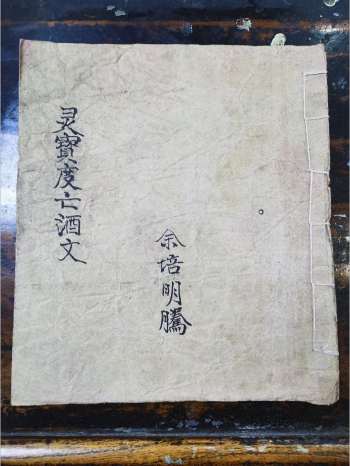 灵寶度亡酒文
余培明騰